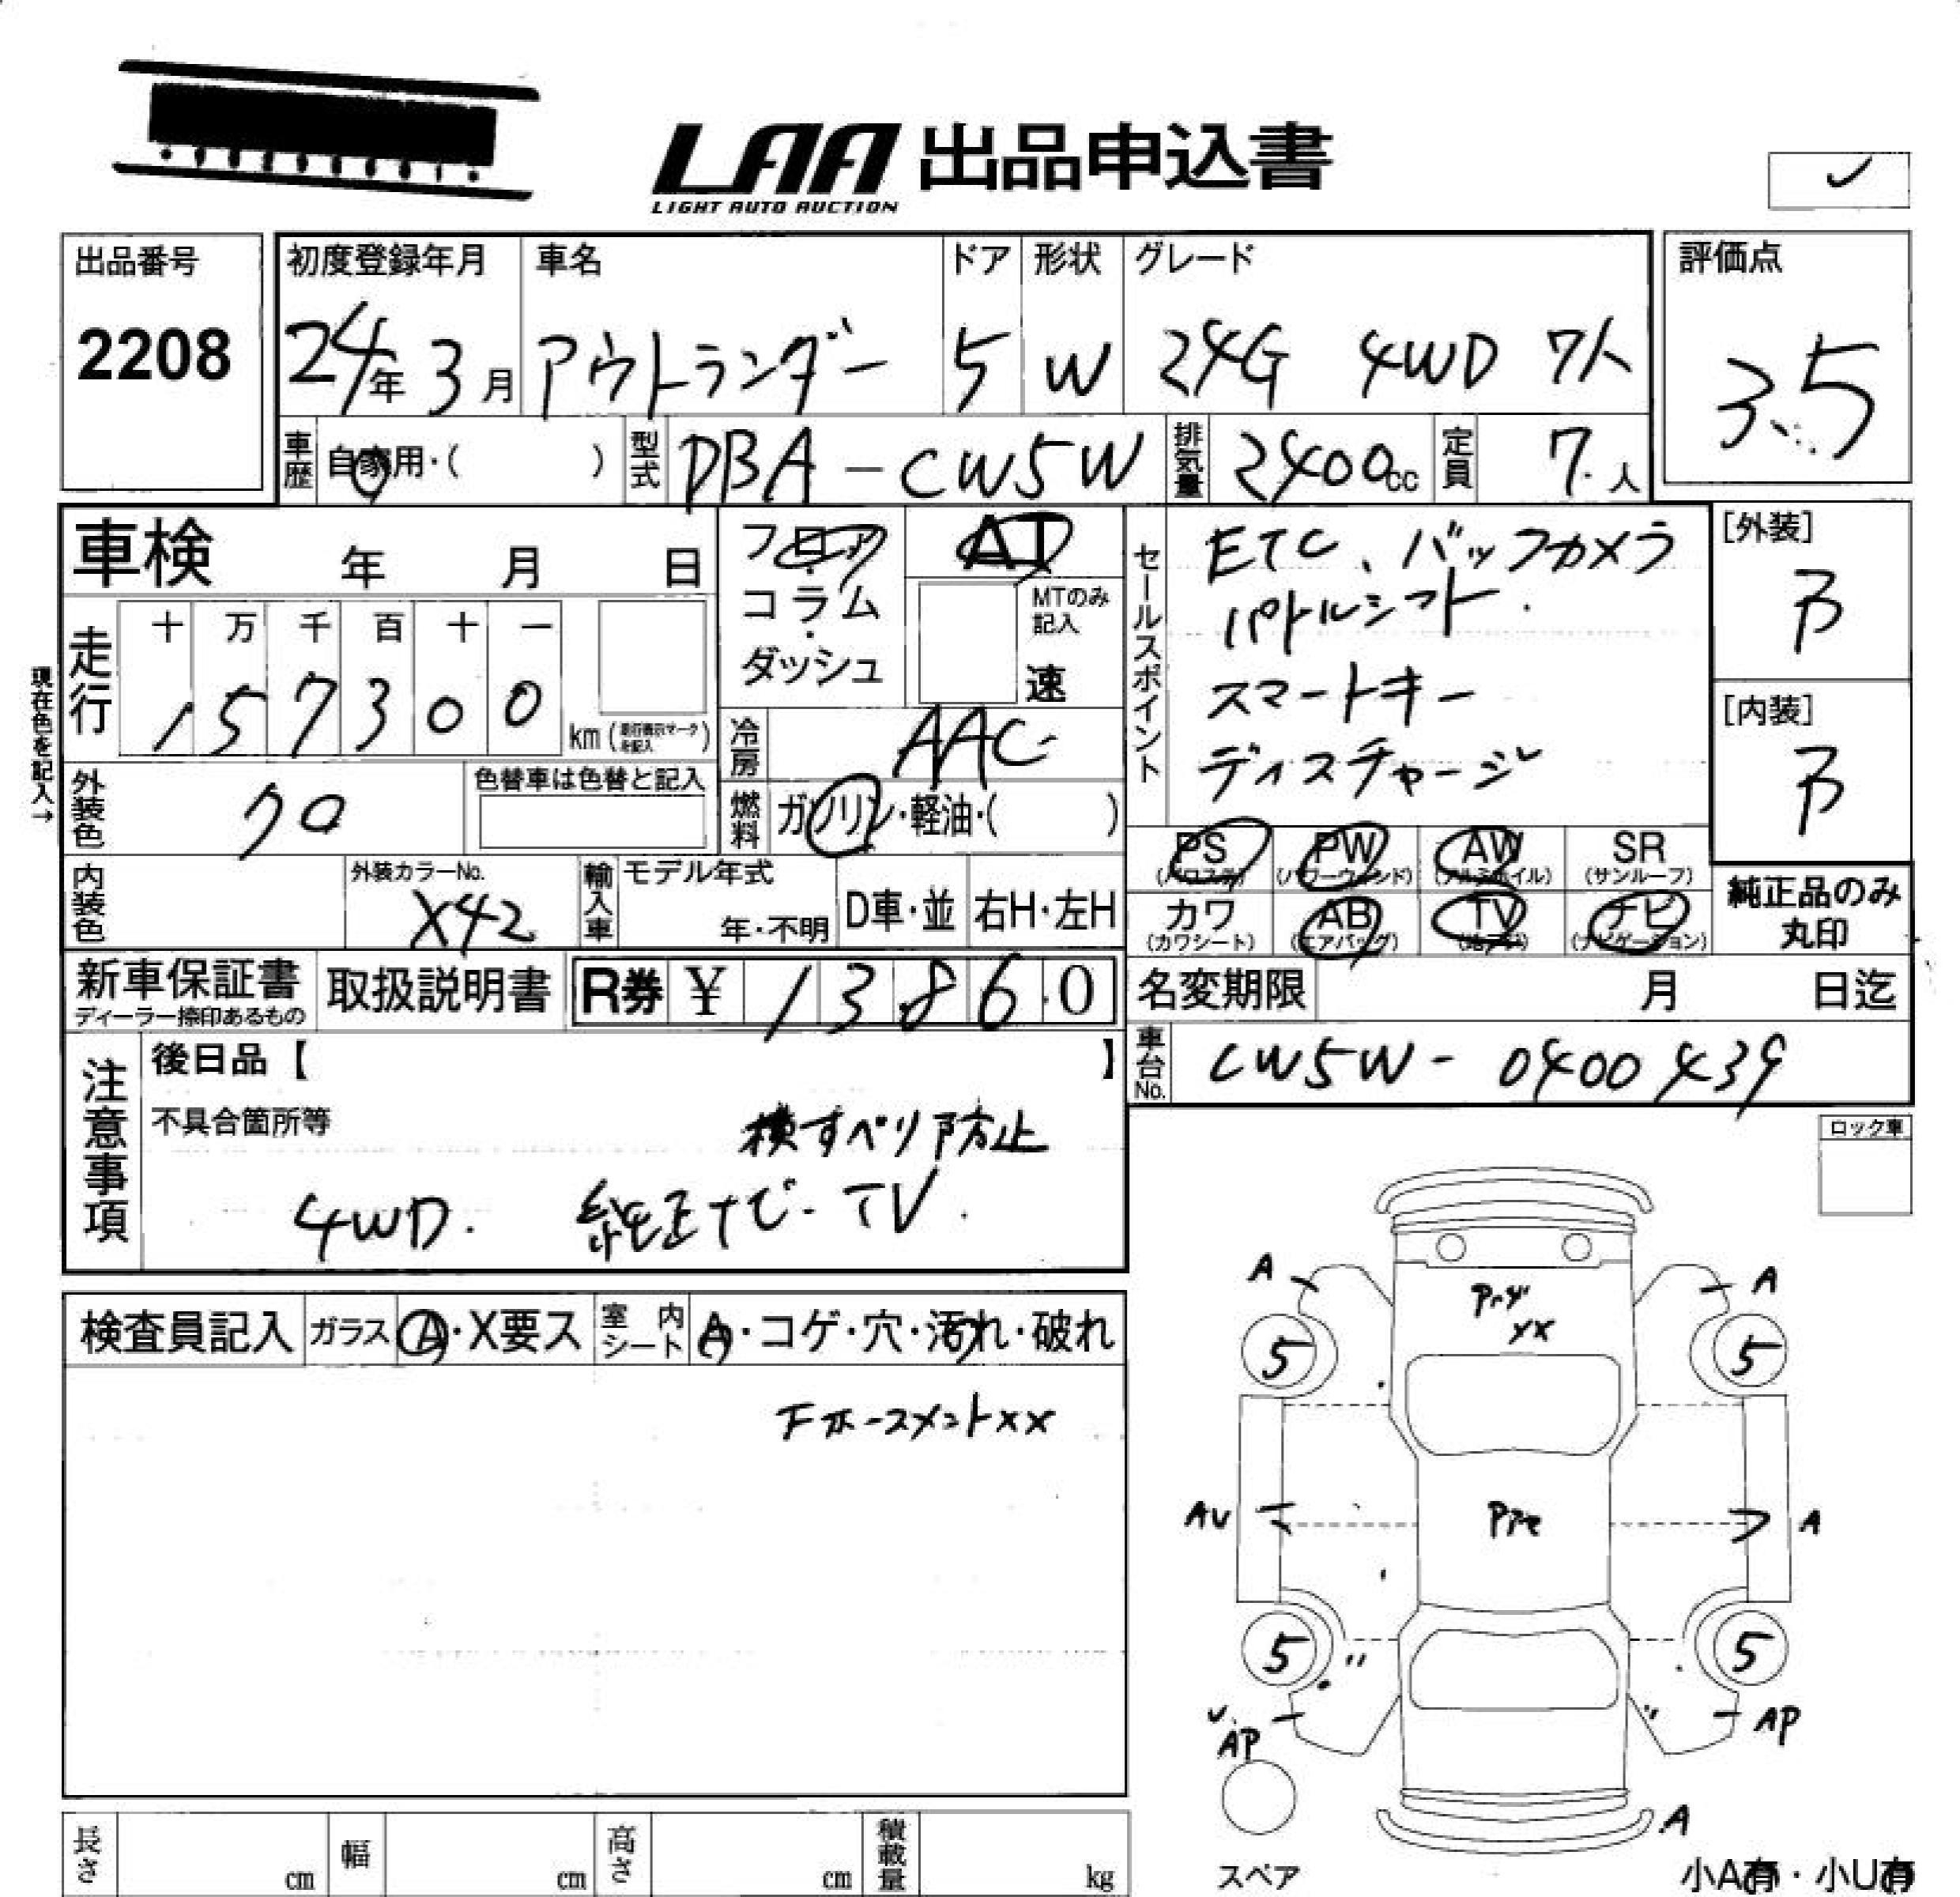 LAA 出品申込書
LIGHT AUTO AUCTION
✓
出品番号
2208
初度登録年月
24年 3月
車名
アウトランダー
ドア
5
形状
W
グレード
24G 4WD 7人
評価点
3.5
車歴 自家用・( )
型式 DBA-CW5W
排気量 2400cc
定員 7人
車検 年 月 日
走行
十 万 千 百 十 一
1 5 7 3 0 0 km
現在色を記入→
フロア
・
コラム
・
ダッシュ
AT
MTのみ
記入
速
冷房 AAC
燃料 ガソリン・軽油・( )
セールスポイント
ETC、バックカメラ
パドルシフト.
スマートキー
ディスチャージ
[外装]
B
[内装]
B
外装色 クロ
色替車は色替と記入
内装色
外装カラーNo.
X42
輸入車
モデル年式
年・不明
D車・並
右H・左H
PS
PW
(パワーウィンド)
AW
SR
(サンルーフ)
カワ
(カワシート)
AB
(エアバッグ)
TV
ナビ
(ナビゲーション)
純正品のみ
丸印
新車保証書
ディーラー捺印あるもの
取扱説明書
R券 ¥ 1 3 8 6 0
名変期限 月 日迄
車台No. CW5W-0400439
注意事項
後日品【 】
不具合箇所等
横すべり防止
4WD. 純正ナビ-TV.
ロック車
検査員記入
ガラス A・X要ス
室内シート A・コゲ・穴・汚れ・破れ
Fホースメントxx
A
A
xx
5
5
AU
A
5
5
〃
〃
U.
AP
AP
A
スペア
小A有・小U有
長さ cm
幅 cm
高さ cm
積載量 kg